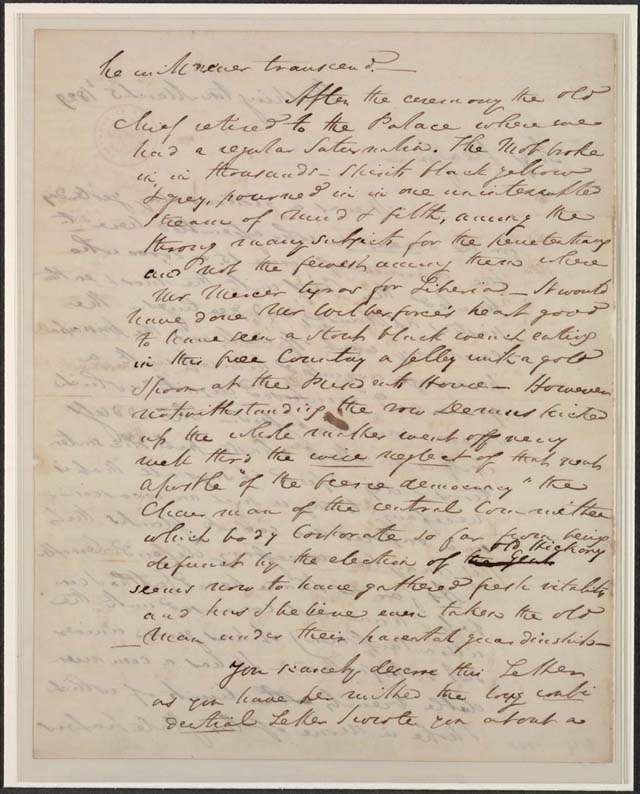 he will never transcend. —
After the ceremony the old
chief retired to the Palace where we
had a regular Saternalia. The Mob broke
in in thousands — Spirits black yellow
& grey, poured in in one uninterrupted
stream of mud & filth, among the
throng many subjects for the penetentiary
and not the fewest among them where
Mr Mercer tyros for Liberia. — It would
have done Mr Wilberforce's heart good
to have seen a stout black wench eating
in this free Country a jelly with a gold
spoon at the Presidents House — However
notwithstanding the row Demus kicked
up the whole matter went off very
well thro the wise neglect of that great
apostle "of the feirce democracy" the
Chairman of the central Committee
which body corporate so far from being
defunct by the election of the Genl old Hickory
seems now to have gathered fresh vitality
and has I believe even taken the old
man under their parental guardinship —
You scarcely deserve this Letter
as you have permitted the long confi
dential Letter I wrote you about a